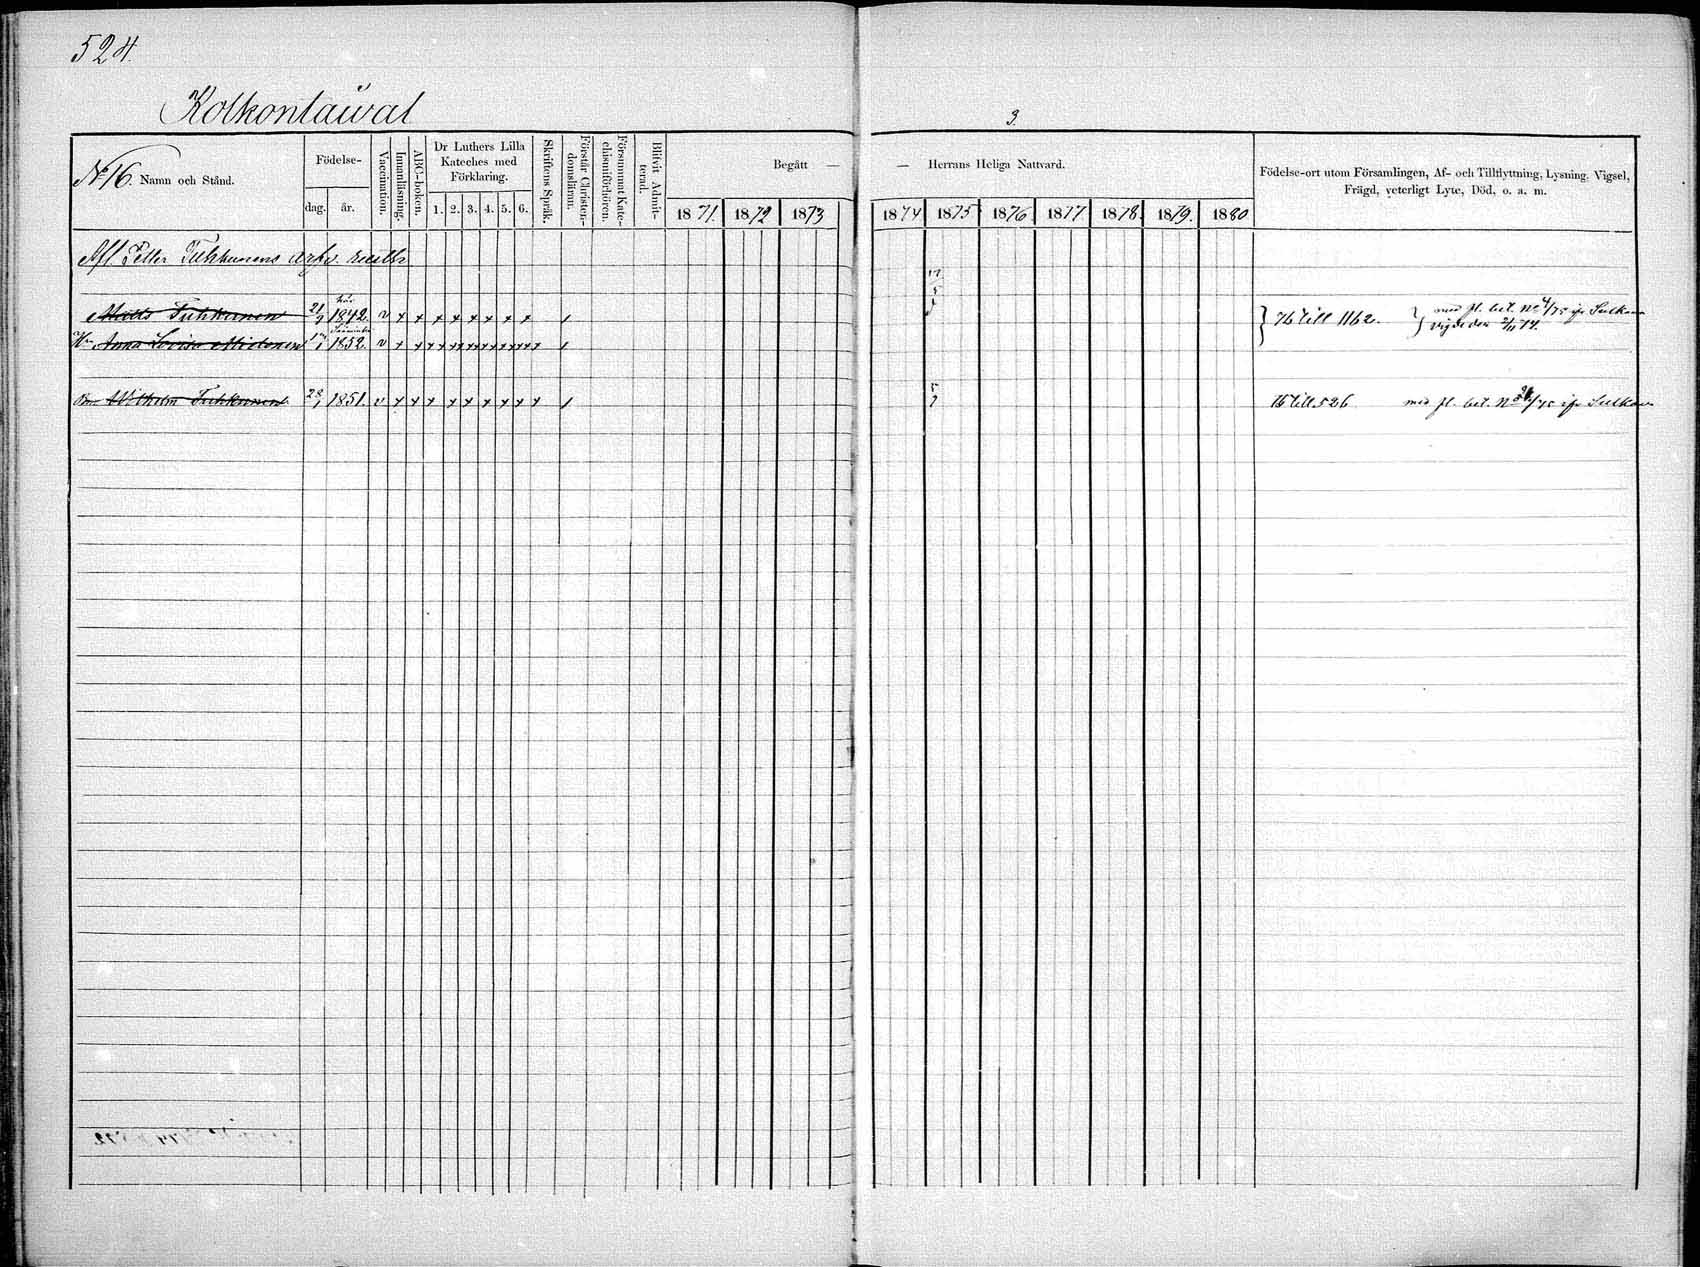 524.
Kolkontaival
3.
No 16. Namn och Stånd.
Födelse-
dag. år.
Vaccination.
Innanläsning.
ABC-boken.
Dr Luthers Lilla
Kateches med
Förklaring.
1. 2. 3. 4. 5. 6.
Skriftens Språk.
Förstår Christen-
domsläran.
Försummat Kate-
chismiförhören.
Blifvit Admit-
terad.
Begått —
1871. 1872 1873
— Herrans Heliga Nattvard.
1874 1875. 1876. 1877. 1878. 1879. 1880
Födelse-ort utom Församlingen, Af- och Tillflyttning, Lysning, Vigsel,
Frägd, veterligt Lyte, Död, o. a. m.
Afl. Petter Tuhkunens arfv.
Matts Tuhkunen 21/9 1842. v x x x x x x x x /
76 till 1162. med fl. bet. No 4/75 ifr Sulkava
vigde den
Hu Anna Lovisa 1852. v x x
Wilhelm Tuhkunen 28/1 1851. v x x x x x x x x x /
16 till 526 med fl. bet. No /75 ifr Sulkava